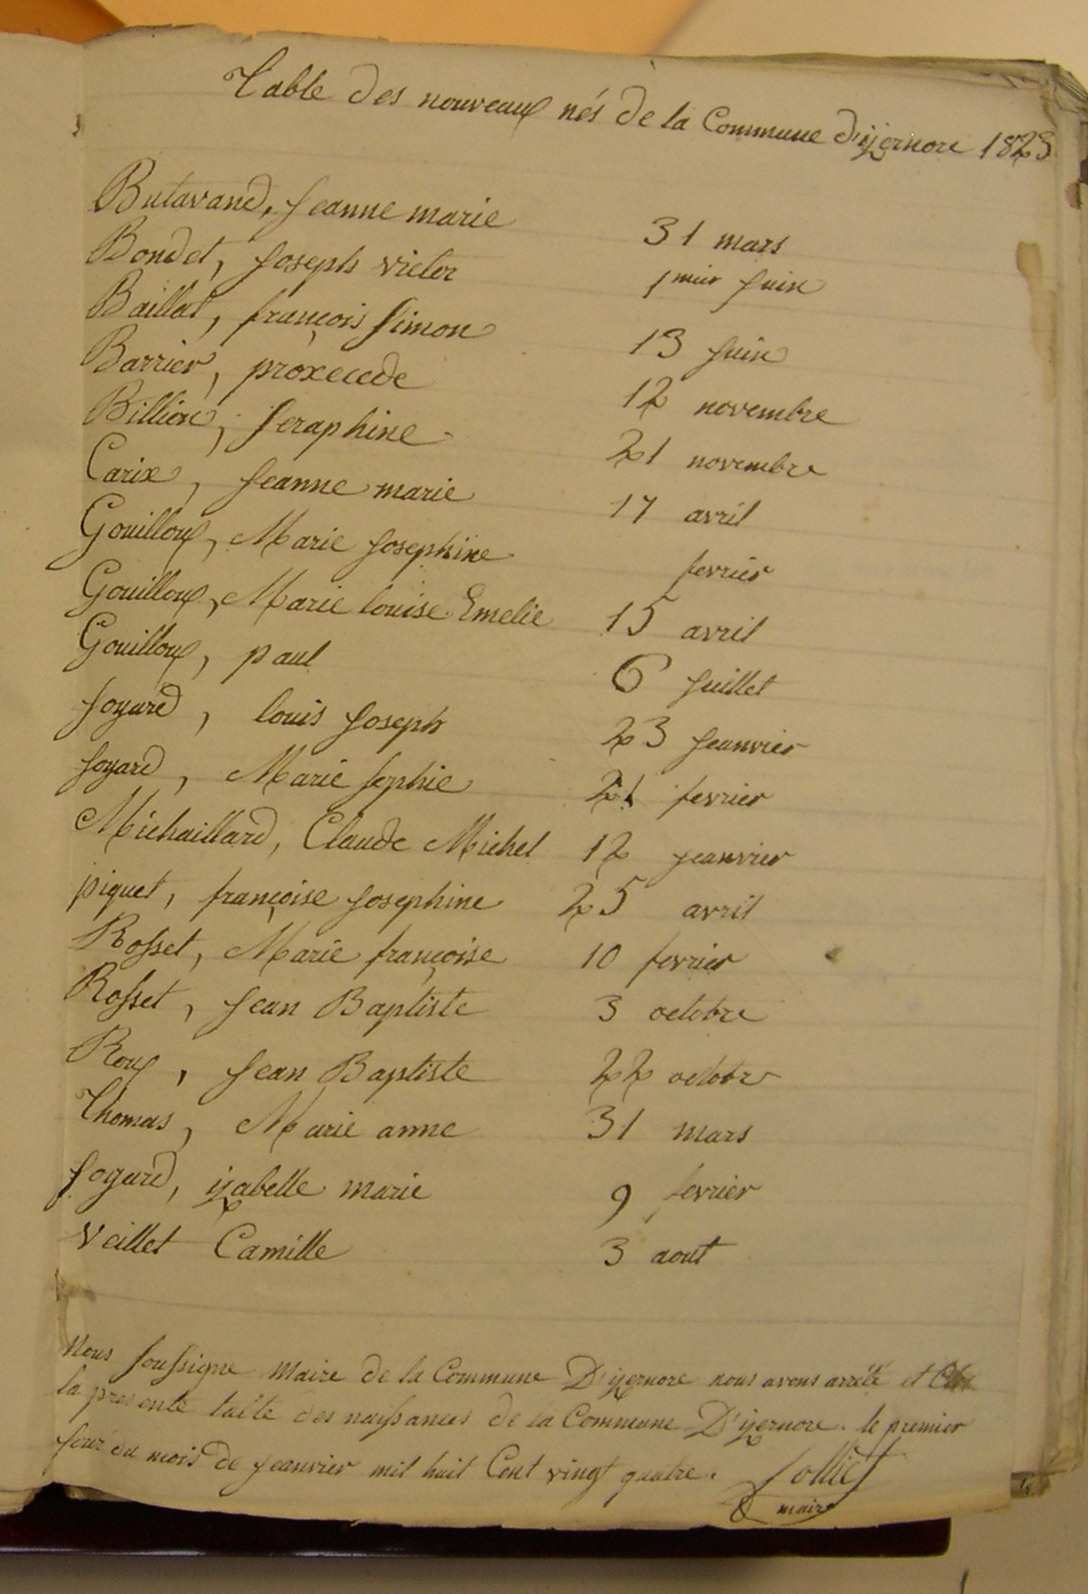 Table des nouveaux nés de la Commune d'izernore 1823
Butavand, Jeanne marie 31 mars
Bondet, Joseph victor 1mier Juin
Baillat, françois Simon 13 Juin
Barrier, proxecede 12 novembre
Billion, Seraphine 21 novembre
Carix, Jeanne marie 17 avril
Gouilloux, Marie Josephine fevrier
Gouilloux, Marie louise Emelie 15 avril
Gouilloux, paul 6 Juillet
Joyard, louis Joseph 23 Jeanvier
Joyard, Marie Sophie 21 fevrier
Michaillard, Claude Michel 12 jeanvier
piquet, françoise Josephine 25 avril
Rosset, Marie françoise 10 fevrier
Rosset, Jean Baptiste 3 octobre
Roux, Jean Baptiste 22 octobre
Thomas, Marie anne 31 mars
Joyard, izabelle marie 9 fevrier
Veillet Camille 3 aout
Nous soussigne Maire de la Commune D'izernore nous avons arrêté et Clos
la presente table des naissances de la Commune D'izernore. le premier
Jour du mois de Jeanvier mil huit Cent vingt quatre. Jolliet
maire